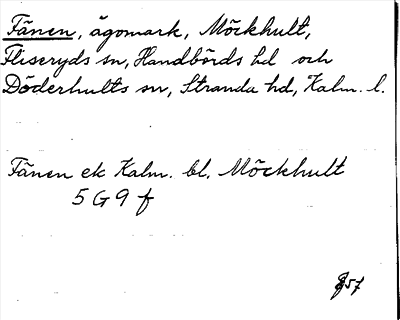 Fänen, ägomark, Möckhult,
Fliseryds sn, Handbörds hd och
Döderhults sn, Stranda hd, Kalm. l.
Fänen ek Kalm. bl. Möckhult
5 G 9 f